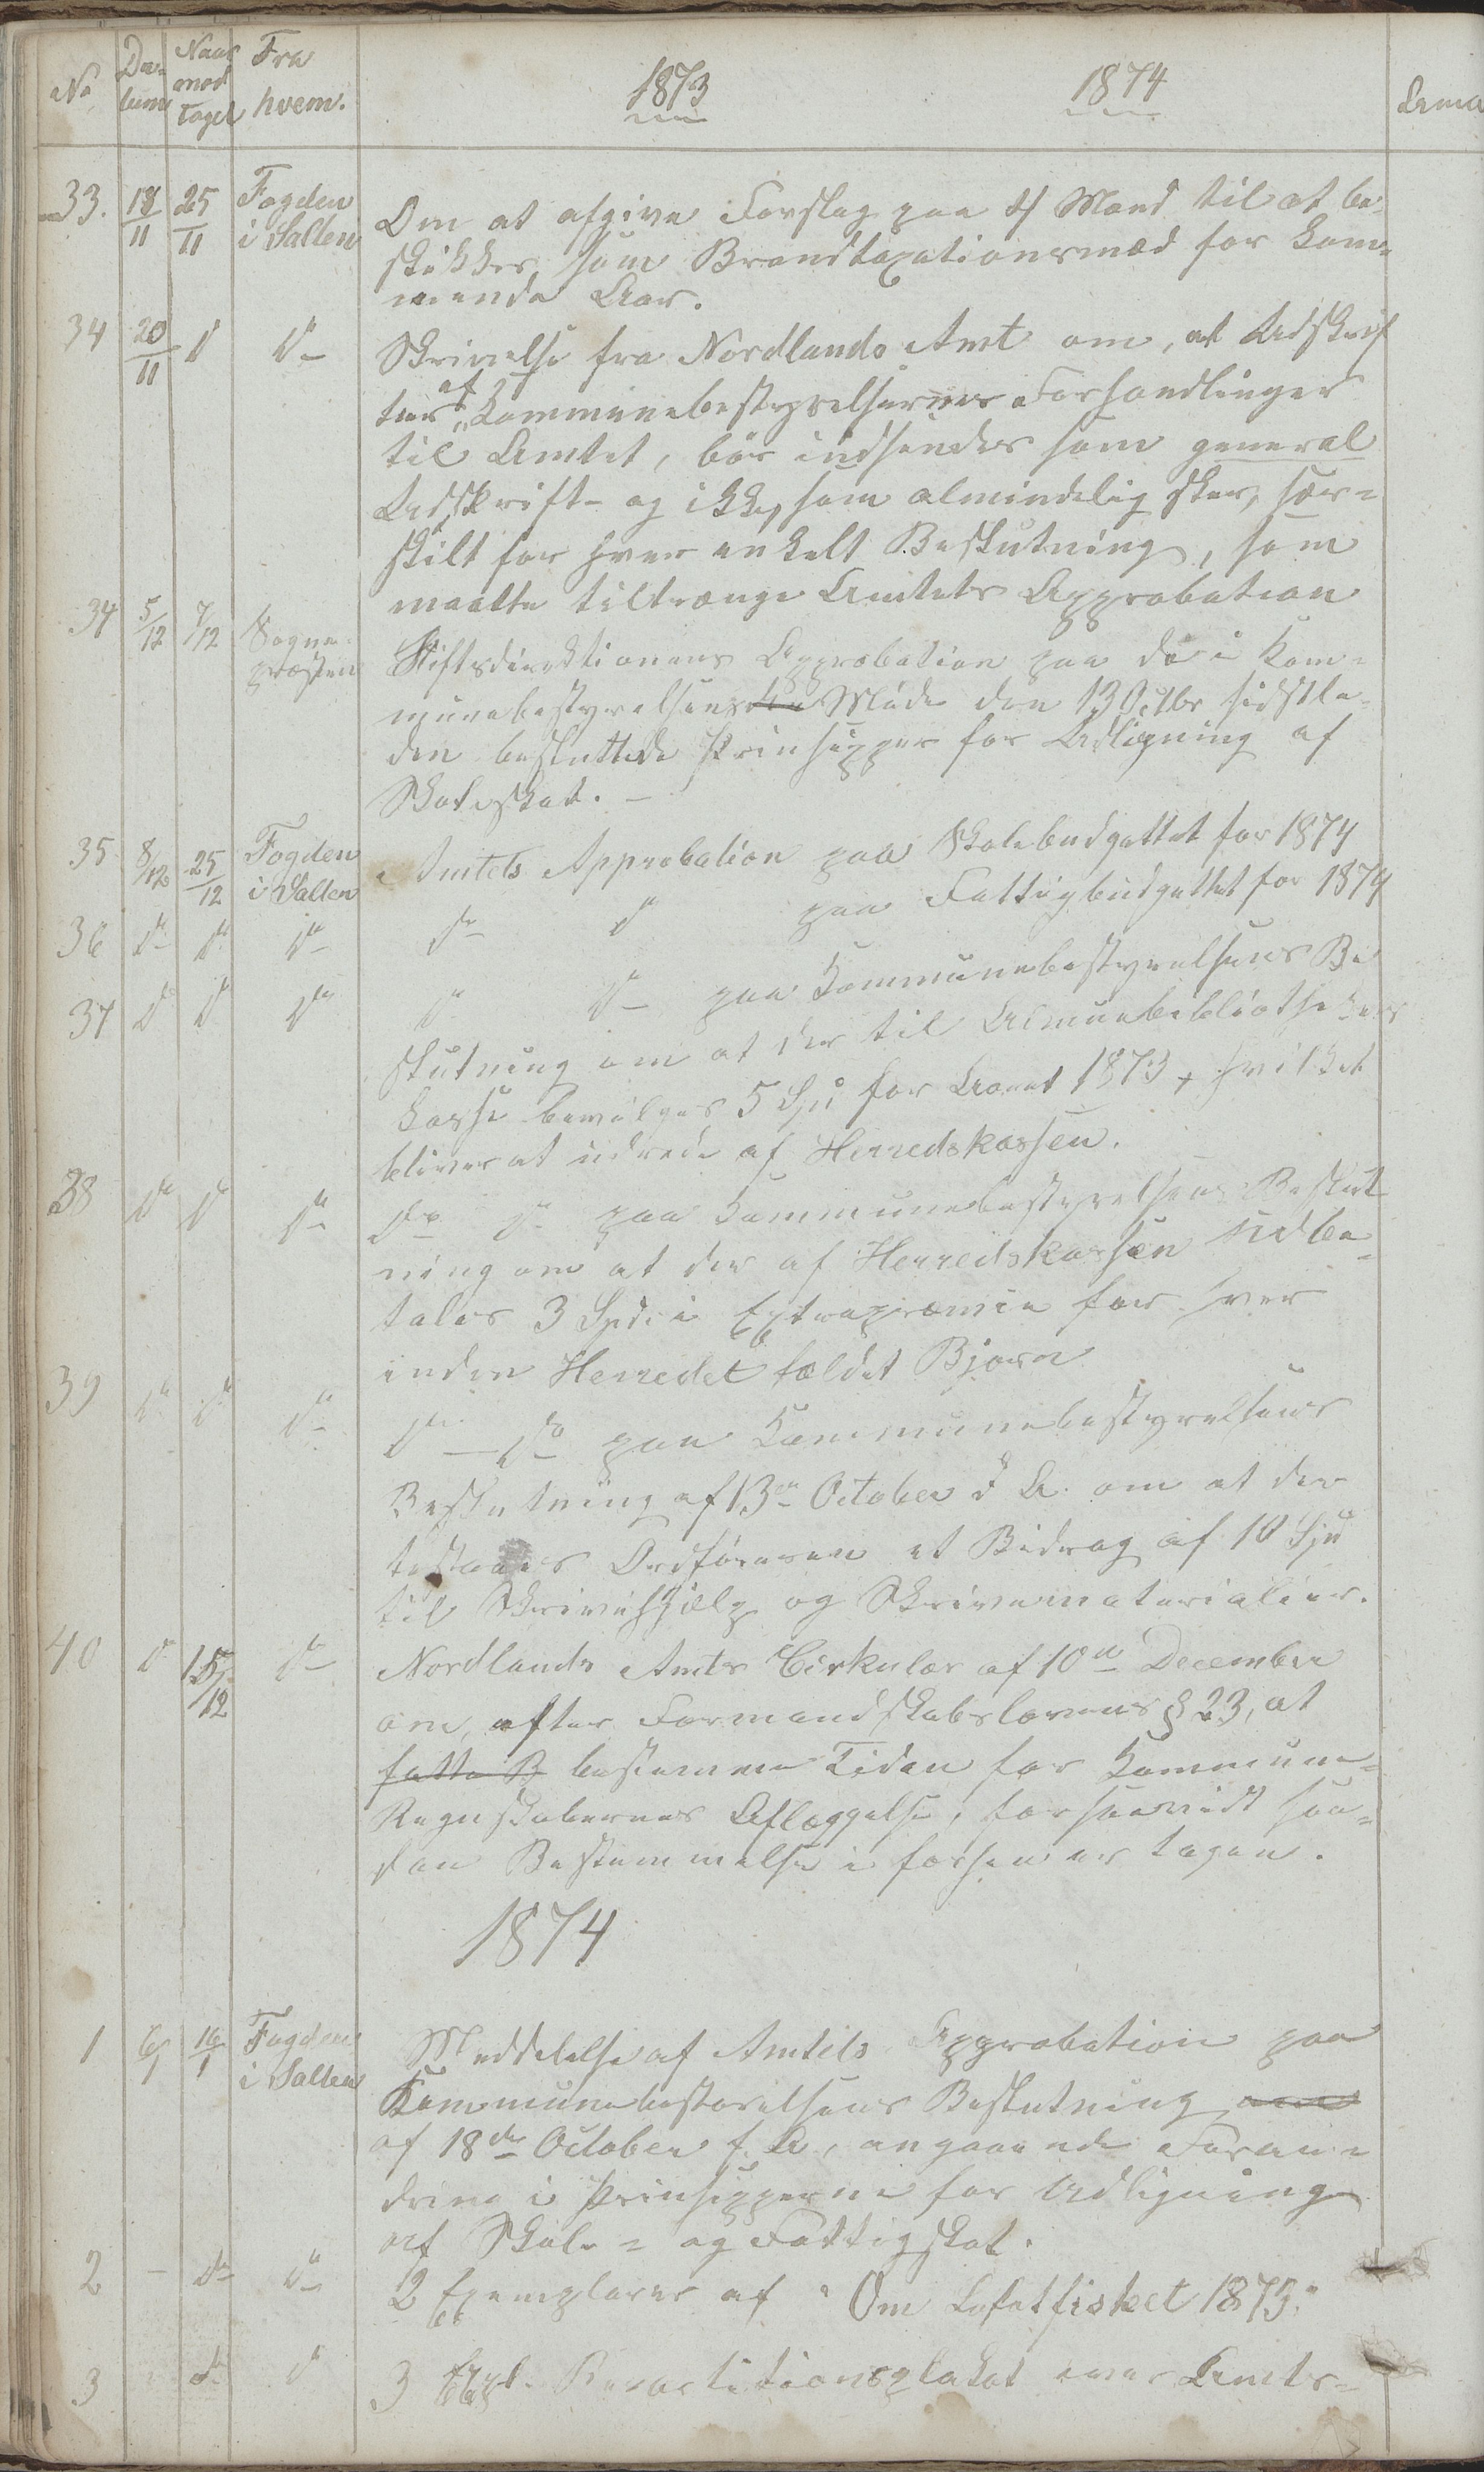 No Da- Naar Fra
tum mod hvem.
taget
1873 1874
Anma
33. 18/11 25/11 Fogden i Salten Om at afgive Forslag paa 4 Mænd til at be-
skikkes som Brandtaxationsmæd for kom-
mende Aar.
34 20/11 do do Skrivelse fra Nordlands Amt om, at Udskrif
ter af Kommunebestyrelsernes Forhandlinger
til Amtet, bør indsendes som general
Udskrift og ikke, som almindelig sker, sær-
skilt for hver enkelt Beslutning, som
maatte tiltrænge Amtets Approbation
34 5/12 7/12 Sogne-
præsten Stiftsdirektionens Approbation paa de i Kom-
munebestyrelsens Møde den 13 Octbr sidstle-
den besluttede Prinsipper for Udligning af
Skoleskat. -
35 8/12 25/12 Fogden i Salten Amtets Approbation paa Skolebudgettet for 1874
36 do do do do do paa Fattigbudgettet for 1874
37 do do do do do paa Kommunebestyrelsens Be
slutning om at der til Almuebibliothekets
Kasse bevilges 5 Spd for Aaret 1873, hvilket
bliver at udrede af Herredskassen.
38 do do do do do paa Kommunebestyrelsens Beslut
ning om at der af Herredskassen udbe-
tales 3 Spd i Extrapræmie for hver
inden Herredet fældet Bjørn
39 do do do do - do paa Kommunebestyrelsens
Beslutning af 13de October d. A. om at der
tilstaaes Ordføreren et Bidrag af 10 Spd
til Skrivehjælp og Skrivematerialier.
40 do 15/12 do Nordlands Amts Cirkulær af 10de December
om, efter Formandskabslovens § 23, at
fatte B bestemme Tiden for Kommune-
Regnskabernes Aflæggelse, forsaavidt saa-
dan Bestemmelse i forhen er tagen.
1874
1 6/1 16/1 Fogden i Salten Meddelelse af Amtets Approbation paa
Kommunebestyrelsens Beslutning om
af 18de October f. A., angaaende Foran-
dring i Prinsipperne for Udligning
af Skole- og Fattigskat.
2 - do do 2 Exemplarer af "Om Lofotfisket 1873."
3 do do 3 Expl. Repartitionsplakat over Amts-